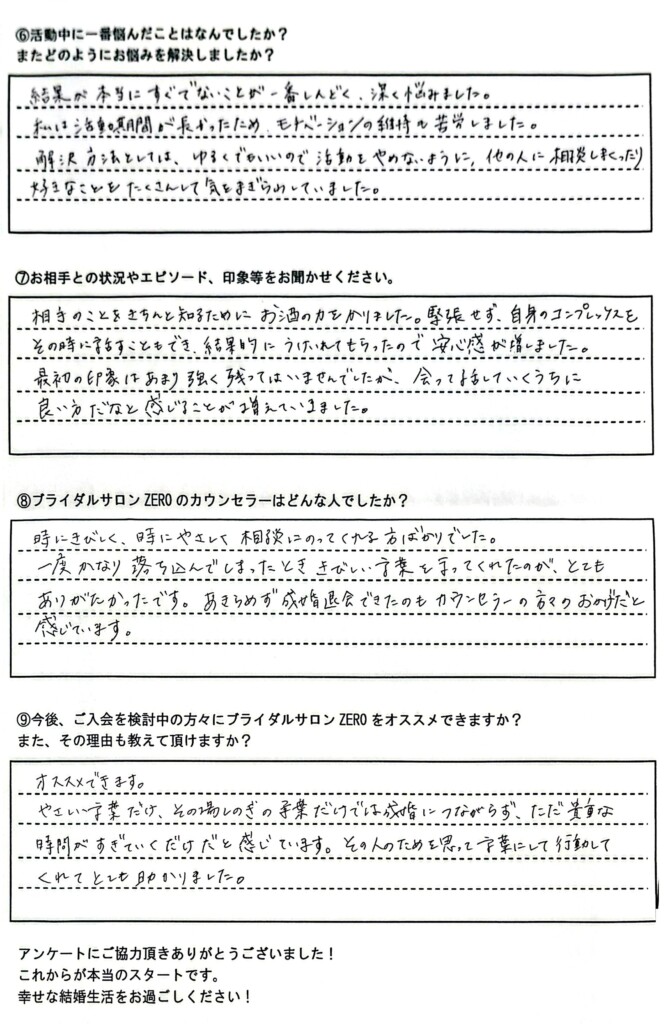 ⑥活動中に一番悩んだことはなんでしたか？
またどのようにお悩みを解決しましたか？
結果が本当にすぐでないことが一番しんどく、深く悩みました。
私は活動期間が長かったため、モチベーションの維持も苦労しました。
解決方法としては、ゆるくでもいいので活動をやめないように、他の人に相談しまくったり
好きなことをたくさんして気をまぎらわしていました。
⑦お相手との状況やエピソード、印象等をお聞かせください。
相手のことをきちんと知るためにお酒の力をかりました。緊張せず、自身のコンプレックスも
その時に話すこともでき、結果的にうけいれてもらったので安心感が増しました。
最初の印象はあまり強く残ってはいませんでしたが、会って話していくうちに
良い方だなと感じることが増えていきました。
⑧ブライダルサロンZEROのカウンセラーはどんな人でしたか？
時にきびしく、時にやさしく相談にのってくれる方ばかりでした。
一度かなり落ち込んでしまったときさびしい言葉を言ってくれたのが、とても
ありがたかったです。あきらめず成婚退会できたのもカウンセラーの方々のおかげだと
感じています。
⑨今後、ご入会を検討中の方々にブライダルサロンZEROをオススメできますか？
また、その理由も教えて頂けますか？
オススメできます。
やさしい言葉だけ、その場しのぎの言葉だけでは成婚につながらず、ただ貴重な
時間がすぎていくだけだと感じています。その人のためを思って言葉にして行動して
くれてとても助かりました。
アンケートにご協力頂きありがとうございました！
これからが本当のスタートです。
幸せな結婚生活をお過ごしください！